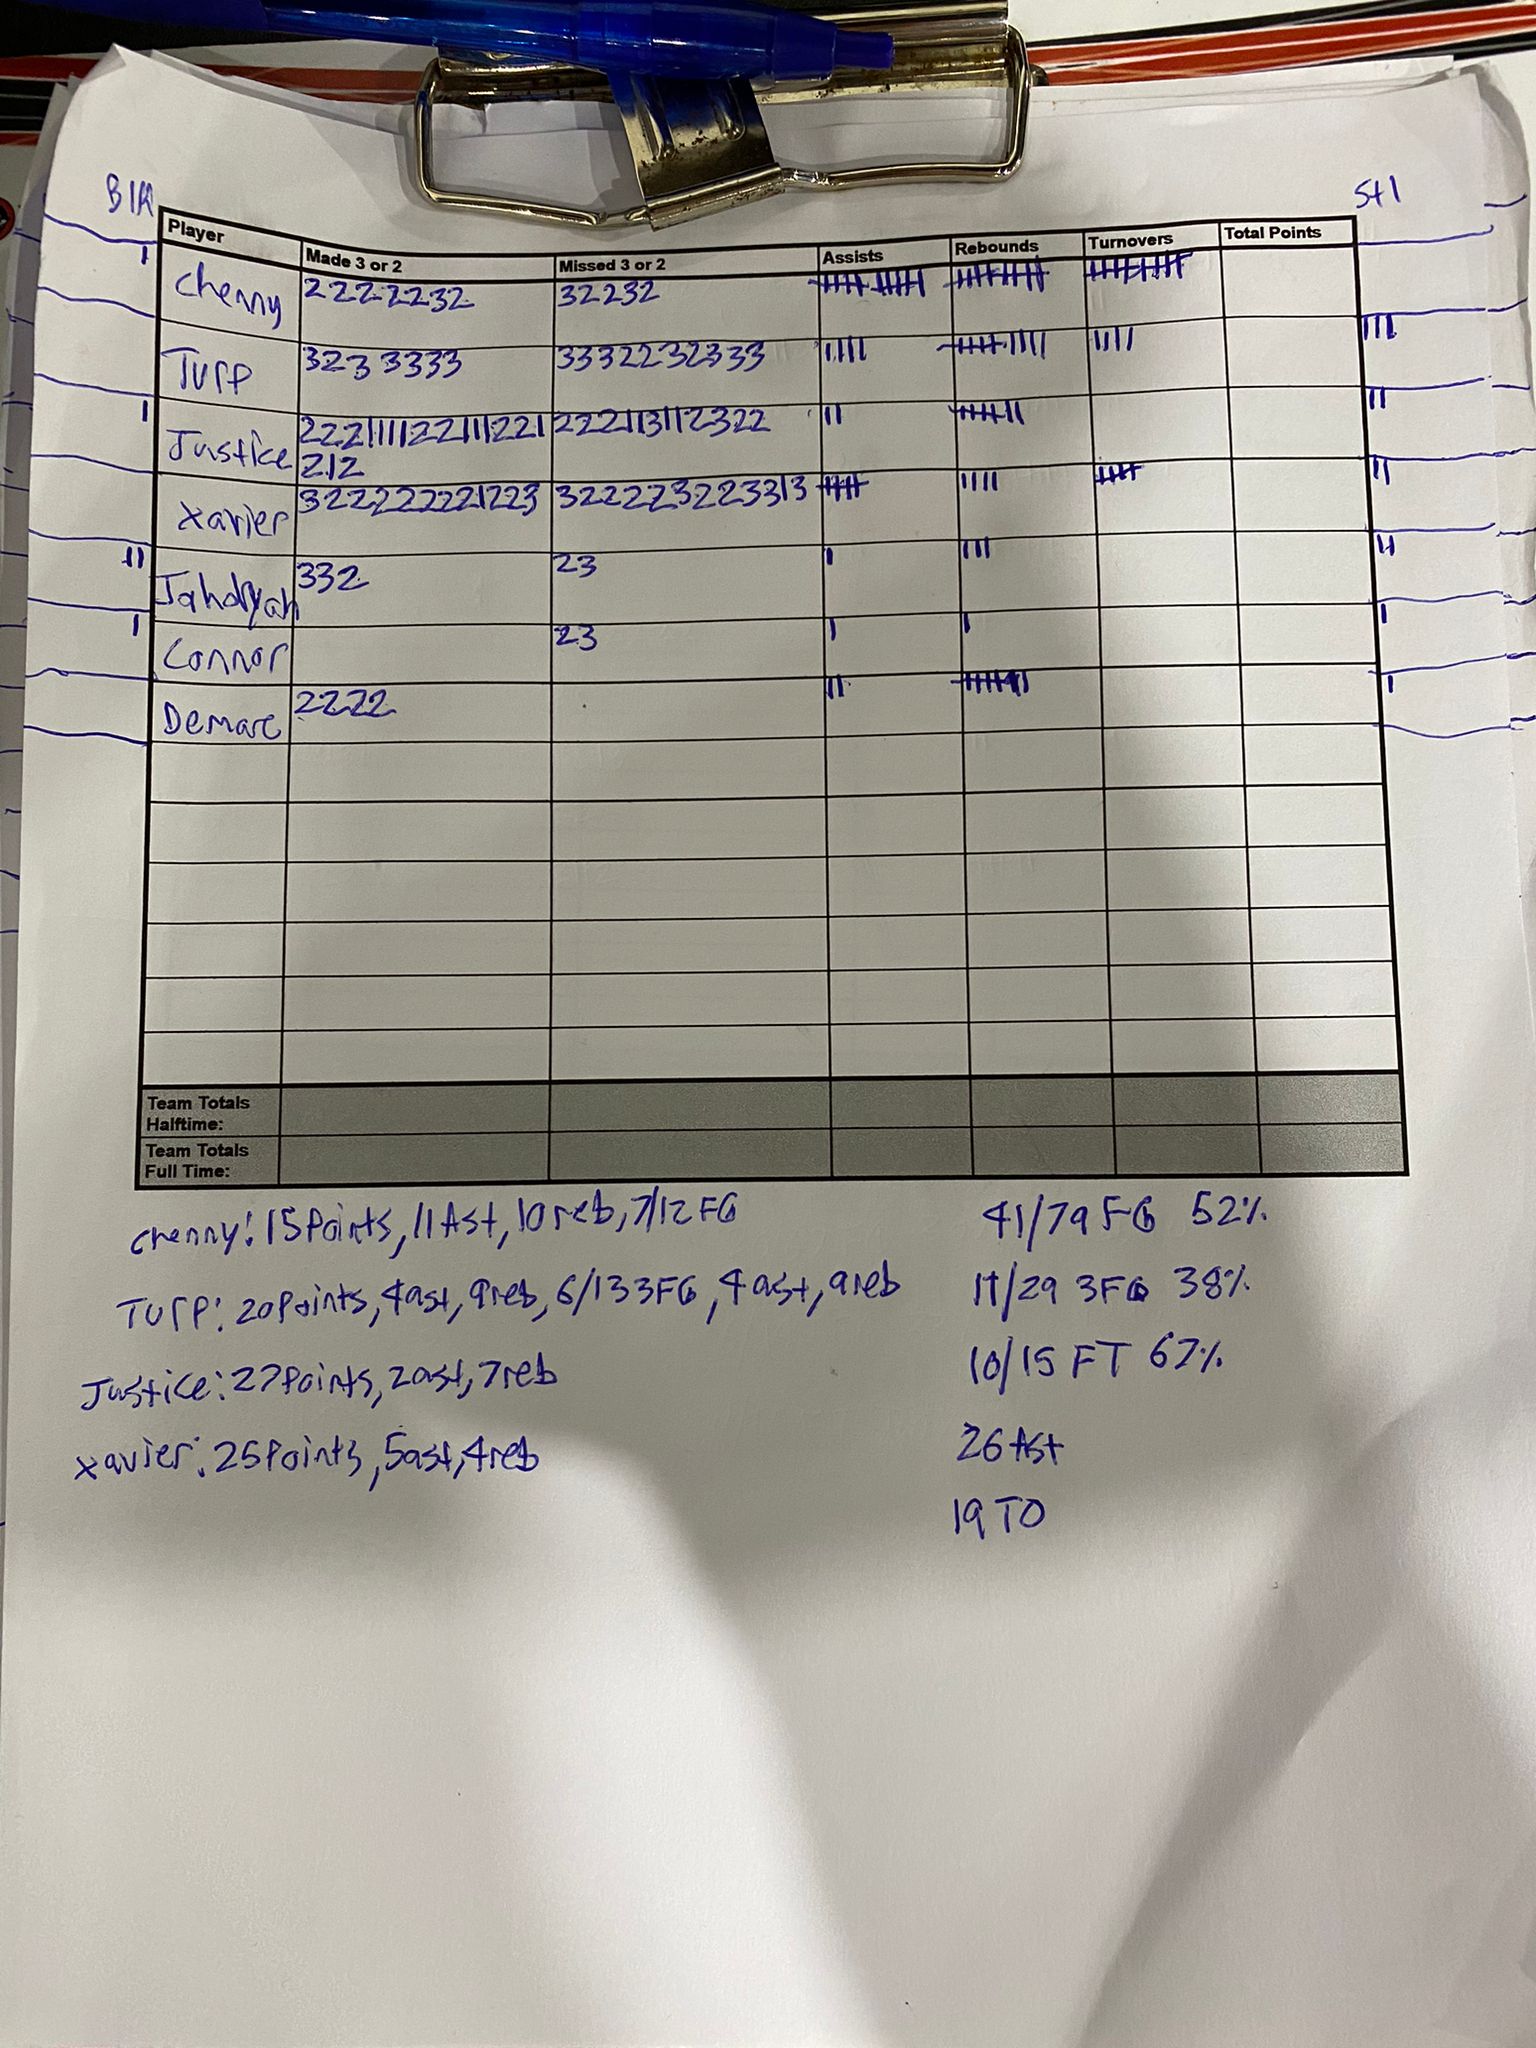 Blk Stl
Player Made 3 or 2 Missed 3 or 2 Assists Rebounds Turnovers Total Points
Chenny 2222232 32232
Turp 3233333 3332232333
Justice 2221111122111221 2221131112322
212
Xavier 3222222221223 3222223223313
Jahdyah 332 23
Connor 23
Demarc 2222
Team Totals
Halftime:
Team Totals
Full Time:
Chenny: 15 Points, 11 Ast, 10 reb, 7/12 FG
Turp: 20 Points, 4ast, 9reb, 6/13 3FG, 4ast, 9reb
Justice: 27 Points, 2ast, 7reb
Xavier: 25 Points, 5ast, 4reb
41/79 FG 52%
11/29 3FG 38%
10/15 FT 67%
26 Ast
19 TO